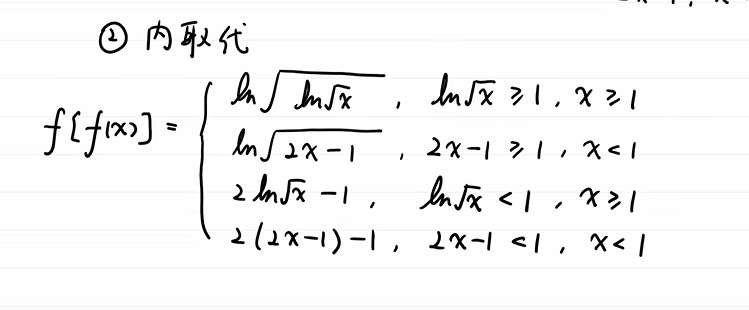 ② 内取代
ln√(ln√x) , ln√x ≥ 1 , x ≥ 1
f[f(x)] = { ln√(2x-1) , 2x-1 ≥ 1 , x < 1
2ln√x -1 , ln√x < 1 , x ≥ 1
2(2x-1)-1 , 2x-1 < 1 , x < 1